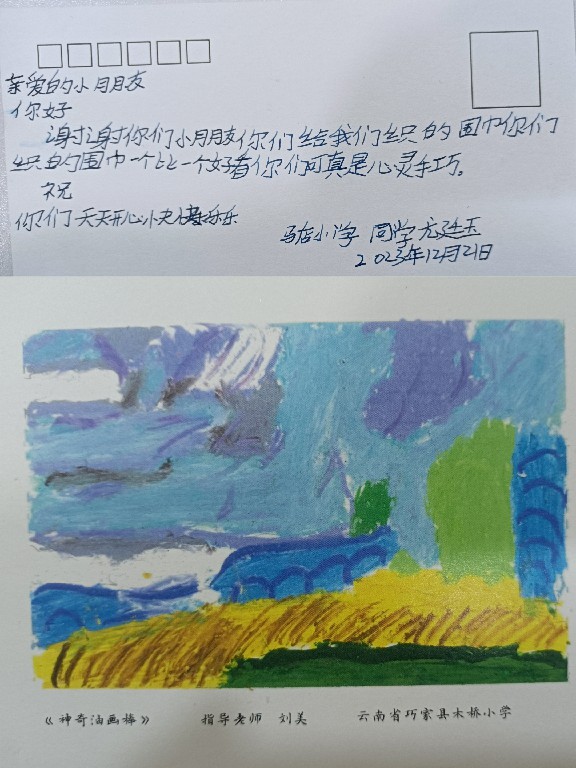 亲爱的小朋友
你好
谢谢你们小朋友你们给我们织的围巾你们
织的围巾一个比一个好看你们可真是心灵手巧。
祝
你们天天开心
马店小学 同学尤廷玉
2023年12月21日
《神奇油画棒》 指导老师 刘美 云南省巧家县木桥小学